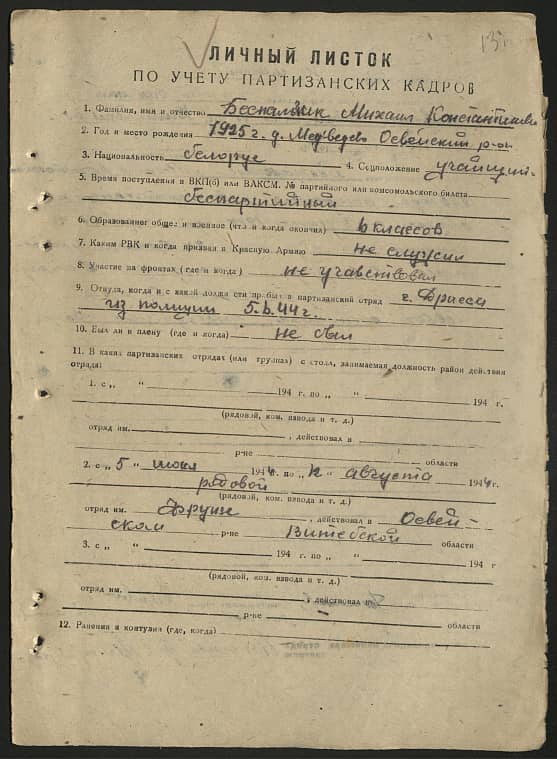 131
ЛИЧНЫЙ ЛИСТОК
ПО УЧЕТУ ПАРТИЗАНСКИХ КАДРОВ
1. Фамилия, имя и отчество Беспальчик Михаил Константинович
2. Год и место рождения 1925 г. д. Медведево Освейский р-он
3. Национальность белорус 4. Соцположение учащий-
5. Время поступления в ВКП(б) или ВЛКСМ, № партийного или комсомольского билета
беспартийный
6. Образование общее и военное (что и когда окончил) 6 классов
7. Каким РВК и когда призван в Красную Армию не служил
8. Участие на фронтах (где и когда) не учавствовал
9. Откуда, когда и с какой должности прибыл в партизанский отряд г. Дрисса
из полиции 5.6.44 г.
10. Был ли в плену (где и когда) не был
11. В каких партизанских отрядах (или группах) состоял, занимаемая должность район действия
отряда:
1. с „ “ 194 г. по „ “ 194 г.
(рядовой, ком. взвода и т. д.)
отряд им. , действовал в
р-не области
2. с „ 5 “ июня 1944 г. по „ 12 “ августа 1944 г.
рядовой
(рядовой, ком. взвода и т. д.)
отряд им. Фрунзе , действовал в Освей-
ском р-не Витебской области
3. с „ “ 194 г. по „ “ 194 г
(рядовой, ком. взвода и т. д.)
отряд им. , действовал в
р-не области
12. Ранения и контузии (где, когда)